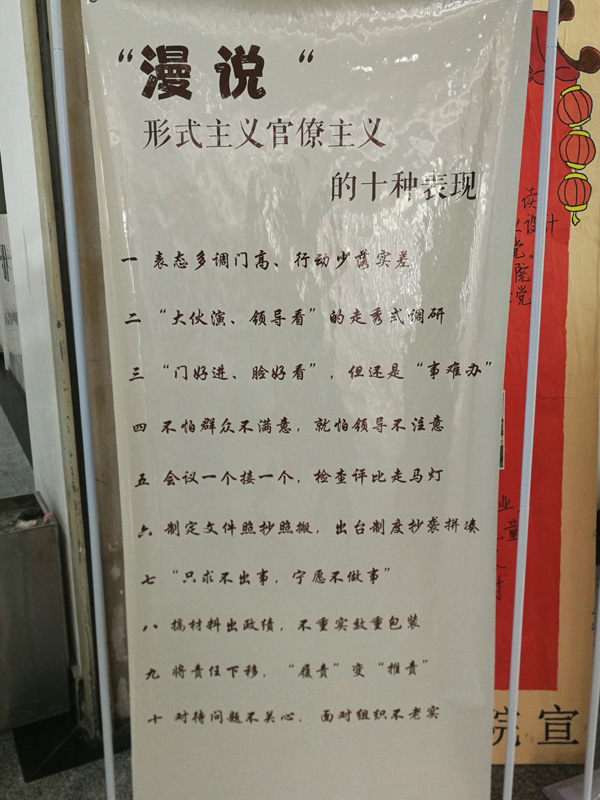 “漫说“
形式主义官僚主义
的十种表现
一 表态多调门高、行动少落实差
二 “大伙演、领导看”的走秀式调研
三 “门好进、脸好看”，但还是“事难办”
四 不怕群众不满意，就怕领导不注意
五 会议一个接一个，检查评比走马灯
六 制定文件照抄照搬，出台制度抄袭拼凑
七 “只求不出事，宁愿不做事”
八 搞材料出政绩，不重实效重包装
九 将责任下移，“履责”变“推责”
十 对待问题不关心，面对组织不老实
读
设计
党。
院
党
业，
童
院宣